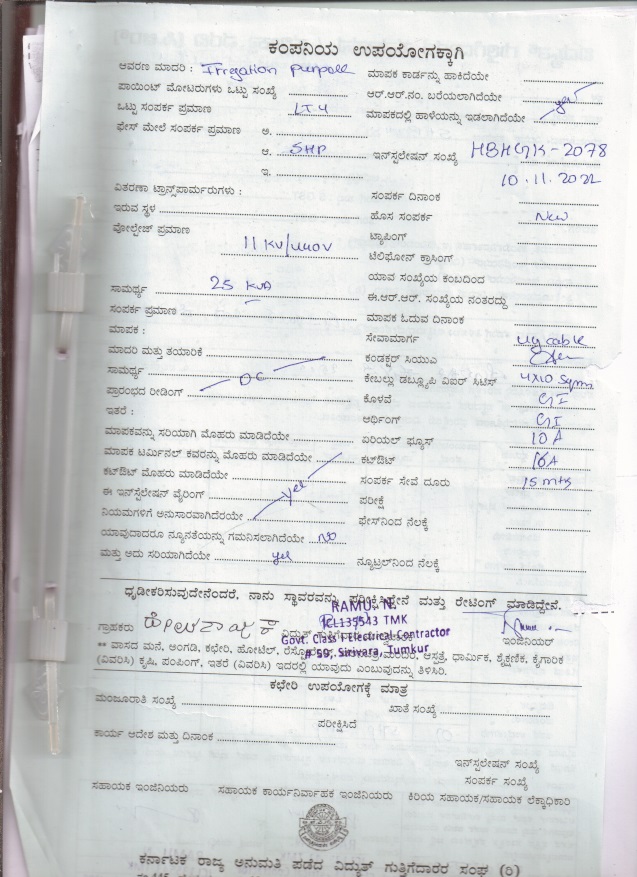 ಕಂಪನಿಯ ಉಪಯೋಗಕ್ಕಾಗಿ
ಆವರಣ ಮಾದರಿ : Irregation purpose ಮಾಪಕ ಕಾರ್ಡನ್ನು ಹಾಕಿದೆಯೇ
ಪಾಯಿಂಟ್ ಮೋಟರುಗಳು ಒಟ್ಟು ಸಂಖ್ಯೆ ಆರ್.ಆರ್.ನಂ. ಬರೆಯಲಾಗಿದೆಯೇ
ಒಟ್ಟು ಸಂಪರ್ಕ ಪ್ರಮಾಣ LT4 ಮಾಪಕದಲ್ಲಿ ಹಾಳೆಯನ್ನು ಇಡಲಾಗಿದೆಯೇ yes
ಫೇಸ್ ಮೇಲೆ ಸಂಪರ್ಕ ಪ್ರಮಾಣ ಅ.
ಆ. 5HP ಇನ್‌ಸ್ಟಲೇಷನ್ ಸಂಖ್ಯೆ HBHGK-2078
ಇ. 10.11.2022
ವಿತರಣಾ ಟ್ರಾನ್ಸ್‌ಪಾರ್ಮರುಗಳು : ಸಂಪರ್ಕ ದಿನಾಂಕ
ಇರುವ ಸ್ಥಳ ಹೊಸ ಸಂಪರ್ಕ New
ವೋಲ್ಟೇಜ್ ಪ್ರಮಾಣ 11 KV/440V ಟ್ಯಾಪಿಂಗ್
ಟೆಲಿಫೋನ್ ಕ್ರಾಸಿಂಗ್
ಯಾವ ಸಂಖ್ಯೆಯ ಕಂಬದಿಂದ
ಸಾಮರ್ಥ್ಯ 25 KVA ಈ.ಆರ್.ಆರ್. ಸಂಖ್ಯೆಯ ನಂತರದ್ದು
ಸಂಪರ್ಕ ಪ್ರಮಾಣ ಮಾಪಕ ಓದುವ ದಿನಾಂಕ
ಮಾಪಕ : ಸೇವಾಮಾರ್ಗ ug cable
ಮಾದರಿ ಮತ್ತು ತಯಾರಿಕೆ ಕಂಡಕ್ಟರ್ ಸಿಯುಎ
ಸಾಮರ್ಥ್ಯ DC ಕೇಬಲ್ಲು ಡಬ್ಲ್ಯೂಪಿ ವಿಐರ್ ಸಿಟಿಸ್ 4x10 Sqmm
ಪ್ರಾರಂಭದ ರೀಡಿಂಗ್ ಕೊಳವೆ GI
ಇತರೆ : ಆರ್ಥಿಂಗ್ GI
ಮಾಪಕವನ್ನು ಸರಿಯಾಗಿ ಮೊಹರು ಮಾಡಿದೆಯೇ ಏರಿಯಲ್ ಫ್ಯೂಸ್ 10A
ಮಾಪಕ ಟರ್ಮಿನಲ್ ಕವರನ್ನು ಮೊಹರು ಮಾಡಿದೆಯೇ ಕಟ್‌ಔಟ್ 16A
ಕಟ್‌ಔಟ್ ಮೊಹರು ಮಾಡಿದೆಯೇ ಸಂಪರ್ಕ ಸೇವೆ ದೂರು 15 mts
ಈ ಇನ್‌ಸ್ಟಲೇಷನ್ ವೈರಿಂಗ್ yes ಪರೀಕ್ಷೆ
ನಿಯಮಗಳಿಗೆ ಅನುಸಾರವಾಗಿದೆರಯೇ ಫೇಸ್‌ನಿಂದ ನೆಲಕ್ಕೆ
ಯಾವುದಾದರೂ ನ್ಯೂನತೆಯನ್ನು ಗಮನಿಸಲಾಗಿದೆಯೇ No
ಮತ್ತು ಅದು ಸರಿಯಾಗಿದೆಯೇ yes ನ್ಯೂಟ್ರಲ್‌ನಿಂದ ನೆಲಕ್ಕೆ
ಧೃಡೀಕರಿಸುವುದೇನೆಂದರೆ, ನಾನು ಸ್ಥಾವರವನ್ನು ಪರೀಕ್ಷಿಸಿದ್ದೇನೆ ಮತ್ತು ರೇಟಿಂಗ್ ಮಾಡಿದ್ದೇನೆ.
RAMU. N.
ICL135543 TMK
ಗ್ರಾಹಕರು ವಿದ್ಯುತ್ ಇಂಜಿನಿಯರ್
Govt. Class I Electrical Contractor
# 59, Sirivara, Tumkur
** ವಾಸದ ಮನೆ, ಅಂಗಡಿ, ಕಛೇರಿ, ಹೋಟೆಲ್, ಆಸ್ಪತ್ರೆ, ಧಾರ್ಮಿಕ, ಶೈಕ್ಷಣಿಕ, ಕೈಗಾರಿಕ
(ವಿವರಿಸಿ) ಕೃಷಿ, ಪಂಪಿಂಗ್, ಇತರೆ (ವಿವರಿಸಿ) ಇದರಲ್ಲಿ ಯಾವುದು ಎಂಬುವುದನ್ನು ತಿಳಿಸಿರಿ.
ಕಛೇರಿ ಉಪಯೋಗಕ್ಕೆ ಮಾತ್ರ
ಮಂಜೂರಾತಿ ಸಂಖ್ಯೆ ಖಾತೆ ಸಂಖ್ಯೆ
ಪರೀಕ್ಷಿಸಿದೆ
ಕಾರ್ಯ ಆದೇಶ ಮತ್ತು ದಿನಾಂಕ
ಇನ್‌ಸ್ಟಲೇಷನ್ ಸಂಖ್ಯೆ
ಸಂಪರ್ಕ ಸಂಖ್ಯೆ
ಸಹಾಯಕ ಇಂಜಿನಿಯರು ಸಹಾಯಕ ಕಾರ್ಯನಿರ್ವಾಹಕ ಇಂಜಿನಿಯರು ಕಿರಿಯ ಸಹಾಯಕ/ಸಹಾಯಕ ಲೆಕ್ಕಾಧಿಕಾರಿ
ಕರ್ನಾಟಕ ರಾಜ್ಯ ಅನುಮತಿ ಪಡೆದ ವಿದ್ಯುತ್ ಗುತ್ತಿಗೆದಾರರ ಸಂಘ (ರಿ)